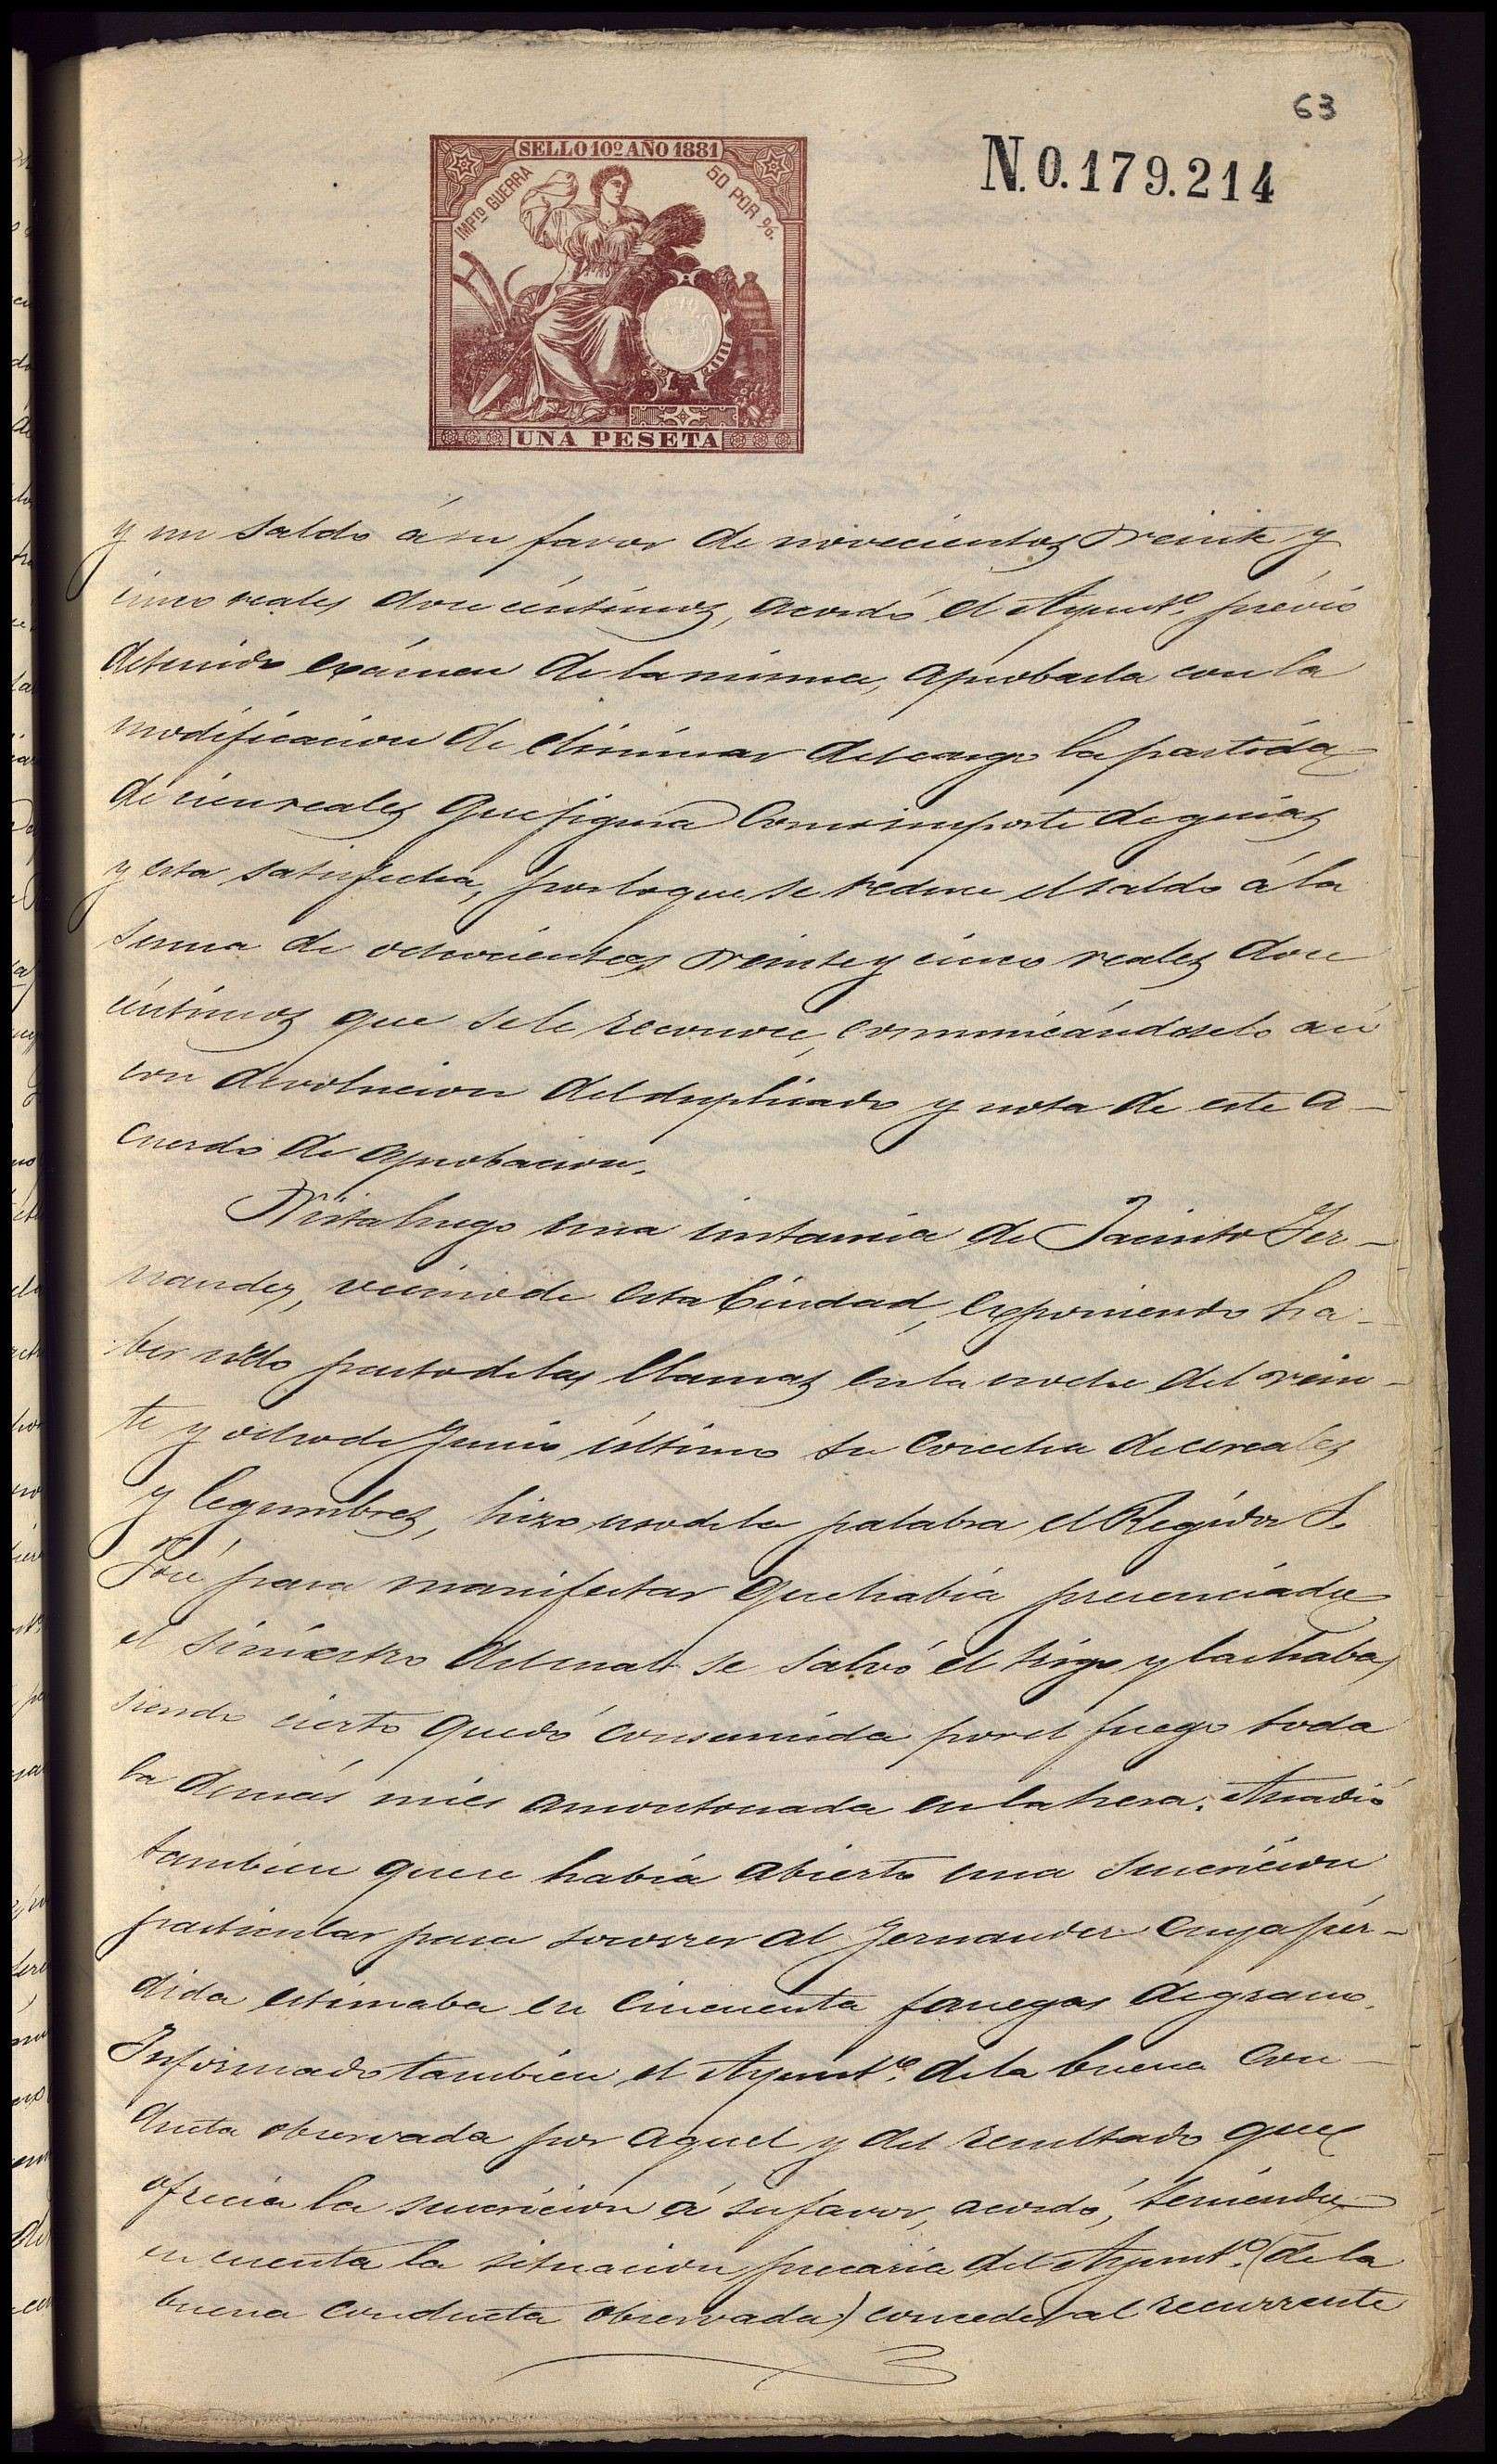 63
N.0.179.214
SELLO 10º AÑO 1881
IMPTO GUERRA 50 POR %.
UNA PESETA
y un saldo á su favor de novecientos treinta y
cinco reales doce céntimos, acordó el Ayuntº. prévio
detenido exámen de la misma, aprobarla con la
modificacion de eliminar del cargo la partida
de cien reales que figura como importe de guias
y esta satisfecha, por lo que se reduce el saldo á la
suma de ochocientos treinta y cinco reales doce
céntimos que se le reconoce, comunicándoselo así
con devolucion del duplicado y nota de este a-
cuerdo de aprobacion.
Vista luego una instancia de Jacinto Fer-
nandez, vecino de esta Ciudad, exponiendo ha-
ber sido pasto de las llamas en la noche del vein-
te y ocho de Junio último su cosecha de cereales
y legumbres, hizo uso de la palabra el Regidor S.
José para manifestar que habia presenciado
el siniestro del cual se salvó el trigo y las habas,
siendo cierto quedó consumida por el fuego toda
la demás mies amontonada en la hera: Añadió
tambien que se había abierto una suscricion
particular para socorrer al Fernandez cuya pér-
dida estimaba en cincuenta fanegas de grano.
Informado tambien el Ayuntº. de la buena con-
ducta observada por aquel y del resultado que
ofrecia la suscricion á su favor, acordó, teniendo
en cuenta la situacion precaria del Ayuntº. (de la
buena conducta observada) conceder al recurrente